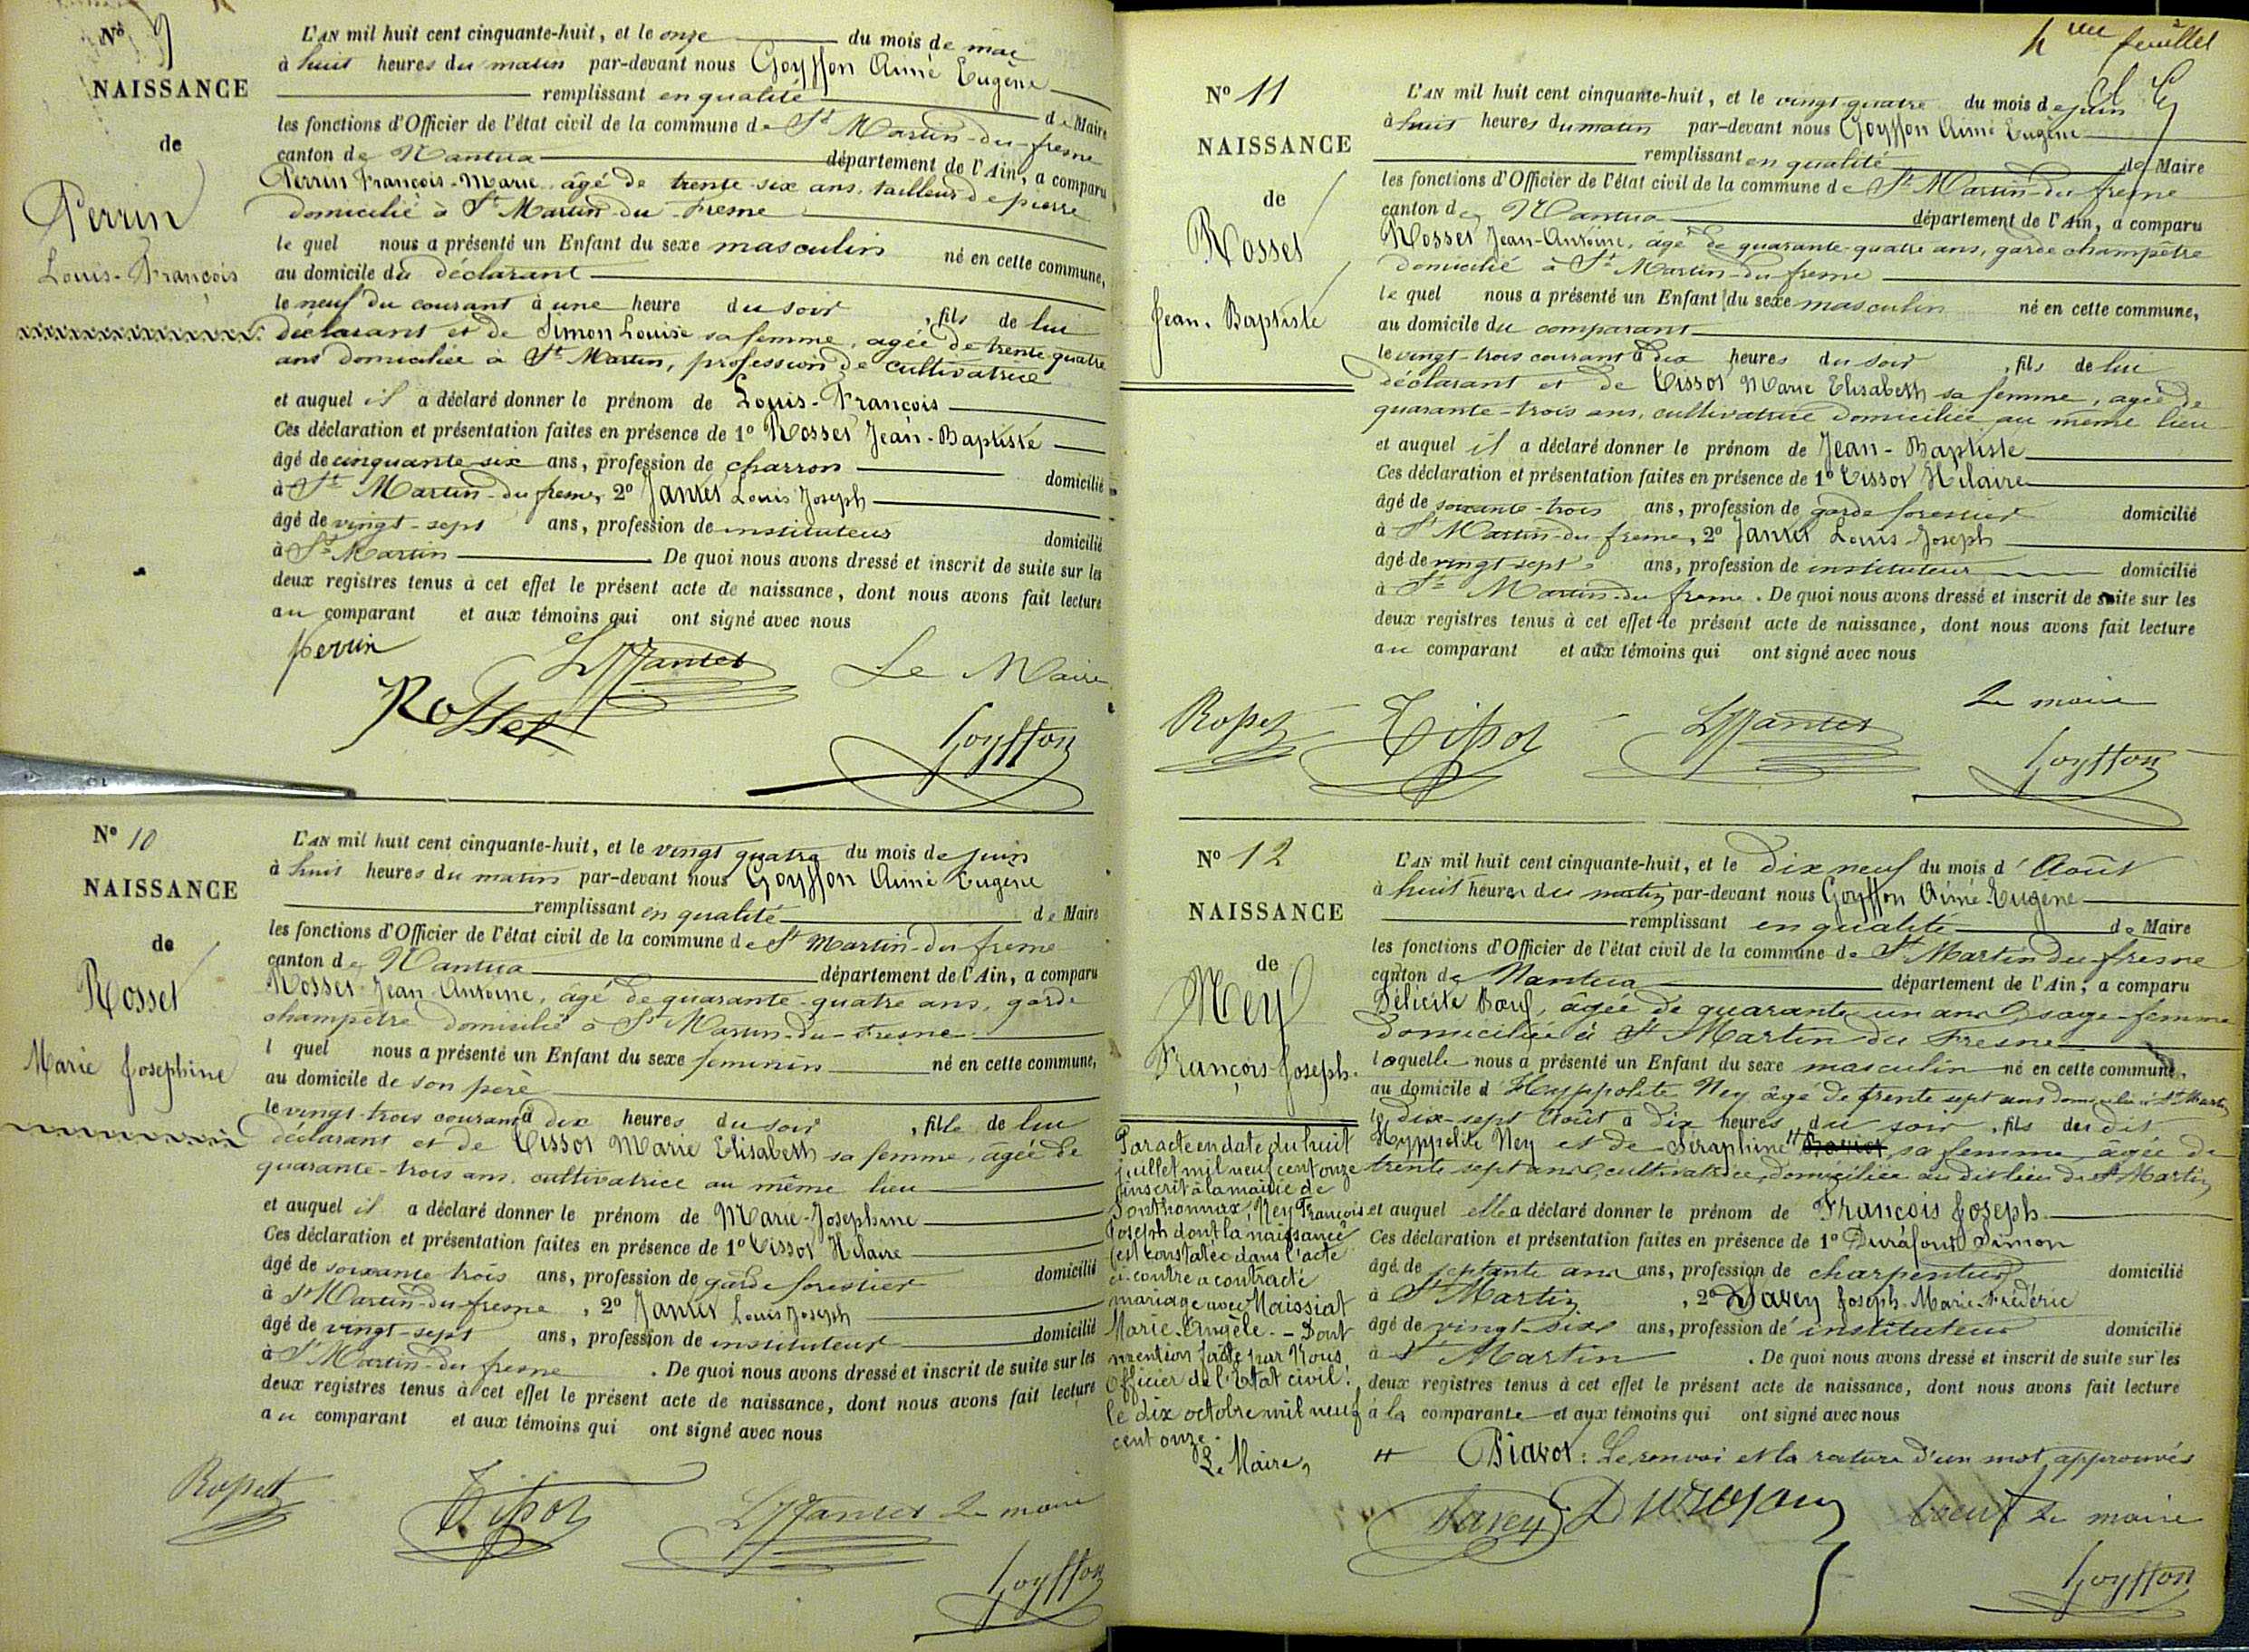 Nº 9
NAISSANCE
de
Perrin
Louis-François
L'AN mil huit cent cinquante-huit, et le onze du mois de mai
à huit heures du matin par-devant nous Goyffon Aimé Eugène
remplissant en qualité de Maire
les fonctions d'Officier de l'état civil de la commune de St Martin-du-fresne
canton de Nantua département de l'Ain, a comparu
Perrin François-Marie, âgé de trente-six ans, tailleur de pierre
domicilié à St Martin-du-Fresne
le quel nous a présenté un Enfant du sexe masculin né en cette commune,
au domicile du déclarant
le neuf du courant à une heure du soir, fils de lui
déclarant et de Simon Louise sa femme, agée de trente quatre
ans domiciliée à St Martin, profession de cultivatrice
et auquel il a déclaré donner le prénom de Louis-François
Ces déclaration et présentation faites en présence de 1º Rosset Jean-Baptiste
âgé de cinquante six ans, profession de charron domicilié
à St Martin-du-fresne, 2º Jantet Louis Joseph
âgé de vingt-sept ans, profession de instituteur domicilié
à St Martin De quoi nous avons dressé et inscrit de suite sur les
deux registres tenus à cet effet le présent acte de naissance, dont nous avons fait lecture
au comparant et aux témoins qui ont signé avec nous
perrin
Rosset
LJJantet
Le Maire
Goyffon
Nº 10
NAISSANCE
de
Rosset
Marie Josephine
L'AN mil huit cent cinquante-huit, et le vingt quatre du mois de juin
à huit heures du matin par-devant nous Goyffon Aimé Eugène
remplissant en qualité de Maire
les fonctions d'Officier de l'état civil de la commune de St Martin-du-fresne
canton de Nantua département de l'Ain, a comparu
Rosset Jean-Antoine, âgé de quarante-quatre ans, garde
champêtre domicilié à St Martin-du-Fresne
l quel nous a présenté un Enfant du sexe feminin né en cette commune,
au domicile de son père
le vingt-trois courant à dix heures du soir, fille de lui
déclarant et de Tissot Marie Elisabeth sa femme, âgée de
quarante-trois ans, cultivatrice au même lieu
et auquel il a déclaré donner le prénom de Marie-Josephine
Ces déclaration et présentation faites en présence de 1º Tissot Hilaire
âgé de soixante trois ans, profession de garde forestier domicilié
à St Martin-du-fresne, 2º Jantet Louis Joseph
âgé de vingt-sept ans, profession de instituteur domicilié
à St Martin-du-fresne. De quoi nous avons dressé et inscrit de suite sur les
deux registres tenus à cet effet le présent acte de naissance, dont nous avons fait lecture
au comparant et aux témoins qui ont signé avec nous
Rosset
Tissot
LJJantet
Le maire
Goyffon
4me feuillet
Nº 11
NAISSANCE
de
Rosset
Jean-Baptiste
L'AN mil huit cent cinquante-huit, et le vingt-quatre du mois de juin
à huit heures du matin par-devant nous Goyffon Aimé Eugène
remplissant en qualité de Maire
les fonctions d'Officier de l'état civil de la commune de St Martin-du-fresne
canton de Nantua département de l'Ain, a comparu
Rosset Jean-Antoine, âgé de quarante-quatre ans, garde champêtre
domicilié à St Martin-du-fresne
le quel nous a présenté un Enfant du sexe masculin né en cette commune,
au domicile du comparant
le vingt-trois courant à dix heures du soir, fils de lui
déclarant et de Tissot Marie Elisabeth sa femme, agée de
quarante-trois ans, cultivatrice domiciliée au même lieu
et auquel il a déclaré donner le prénom de Jean-Baptiste
Ces déclaration et présentation faites en présence de 1º Tissot Hilaire
âgé de soixante-trois ans, profession de garde forestier domicilié
à St Martin-du-fresne, 2º Jantet Louis-Joseph
âgé de vingt sept ans, profession de instituteur domicilié
à St Martin-du fresne. De quoi nous avons dressé et inscrit de suite sur les
deux registres tenus à cet effet le présent acte de naissance, dont nous avons fait lecture
au comparant et aux témoins qui ont signé avec nous
Rosset
Tissot
LJJantet
Le maire
Goyffon
Nº 12
NAISSANCE
de
Ney
François-Joseph.
Par acte en date du huit
juillet mil neuf cent onze
inscrit à la mairie de
Ney François
Joseph dont la naissance
est constatée dans l'acte
ci-contre a contracté
mariage avec Maissiat
Marie Angèle. - Dont
mention faite par Nous
Officier de l'Etat civil.
le dix octobre mil neuf
cent onze.
Le Maire,
L'AN mil huit cent cinquante-huit, et le dix neuf du mois d'Août
à huit heures du matin par-devant nous Goyffon Aimé-Eugène
remplissant en qualité de Maire
les fonctions d'Officier de l'état civil de la commune de St Martin du fresne
canton de Nantua département de l'Ain, a comparu
Félicité Bœuf, âgée de quarante-un ans, sage-femme
domiciliée à St Martin du Fresne
laquelle nous a présenté un Enfant du sexe masculin né en cette commune,
au domicile d'Hyppolite Ney âgé de trente sept ans domicilié à St Martin
le dix-sept Août à dix heures du soir, fils du dit
Hyppolite Ney et de Séraphine # sa femme âgée de
trente sept ans, cultivatrice, domiciliée au dit lieu de St Martin
et auquel elle a déclaré donner le prénom de François Joseph
Ces déclaration et présentation faites en présence de 1º Durafour Simon
âgé de septante ans ans, profession de charpentier domicilié
à St Martin, 2º Savey Joseph-Marie-Frédéric
âgé de vingt-six ans, profession de instituteur domicilié
à St Martin. De quoi nous avons dressé et inscrit de suite sur les
deux registres tenus à cet effet le présent acte de naissance, dont nous avons fait lecture
à la comparante et aux témoins qui ont signé avec nous
# Piavot: Le renvoi et la rature d'un mot approuvés
Savey
Durafour
bœuf
Le maire
Goyffon